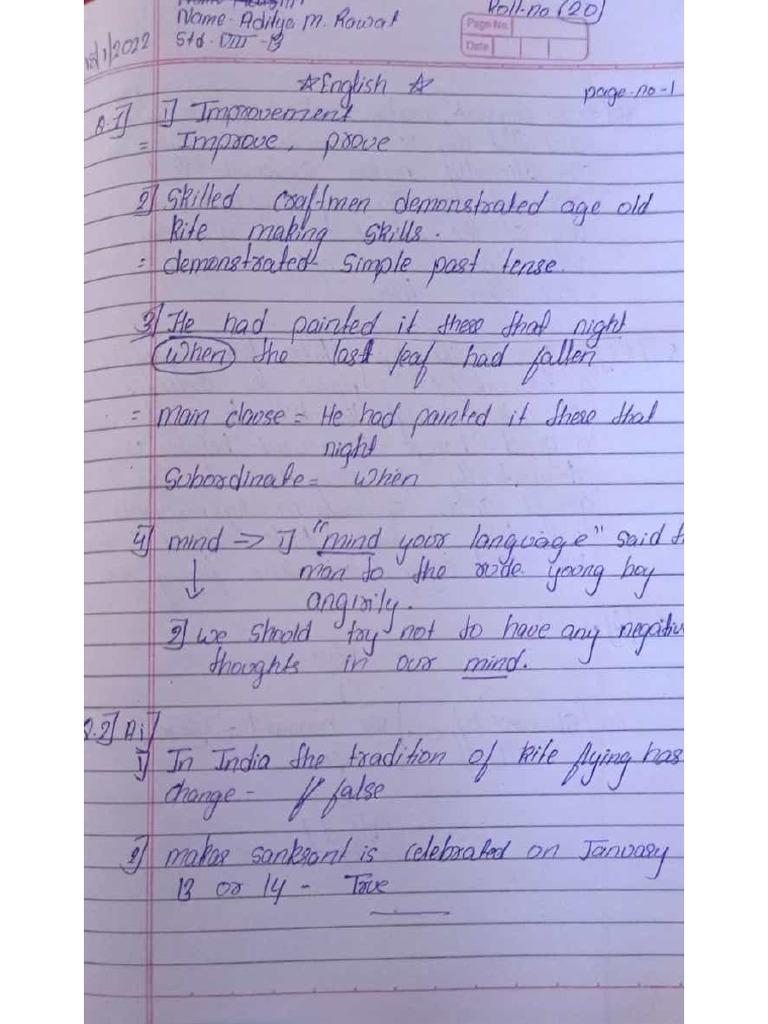 Name - Aditya M. Rawat
Roll-no (20)
Std - VIII - B
Page No.
Date
/1/2022
☆English ☆
page-no-1
Q.1] 1] Improvement
= Improve, prove
2] Skilled craftmen demonstrated age old
kite making skills.
= demonstrated- Simple past tense.
3] He had painted it there that night
(When) the last leaf had fallen
= Main clause = He had painted it there that
night
Subordinate = When
4] mind => 1] "mind your language" said t
man to the rude young boy
↓
angirily.
2] we should try not to have any negative
thoughts in our mind.
Q.2] A1]
1] In India the tradition of kite flying has
change - false
2] makar sankrant is celebrated on January
13 or 14 - True